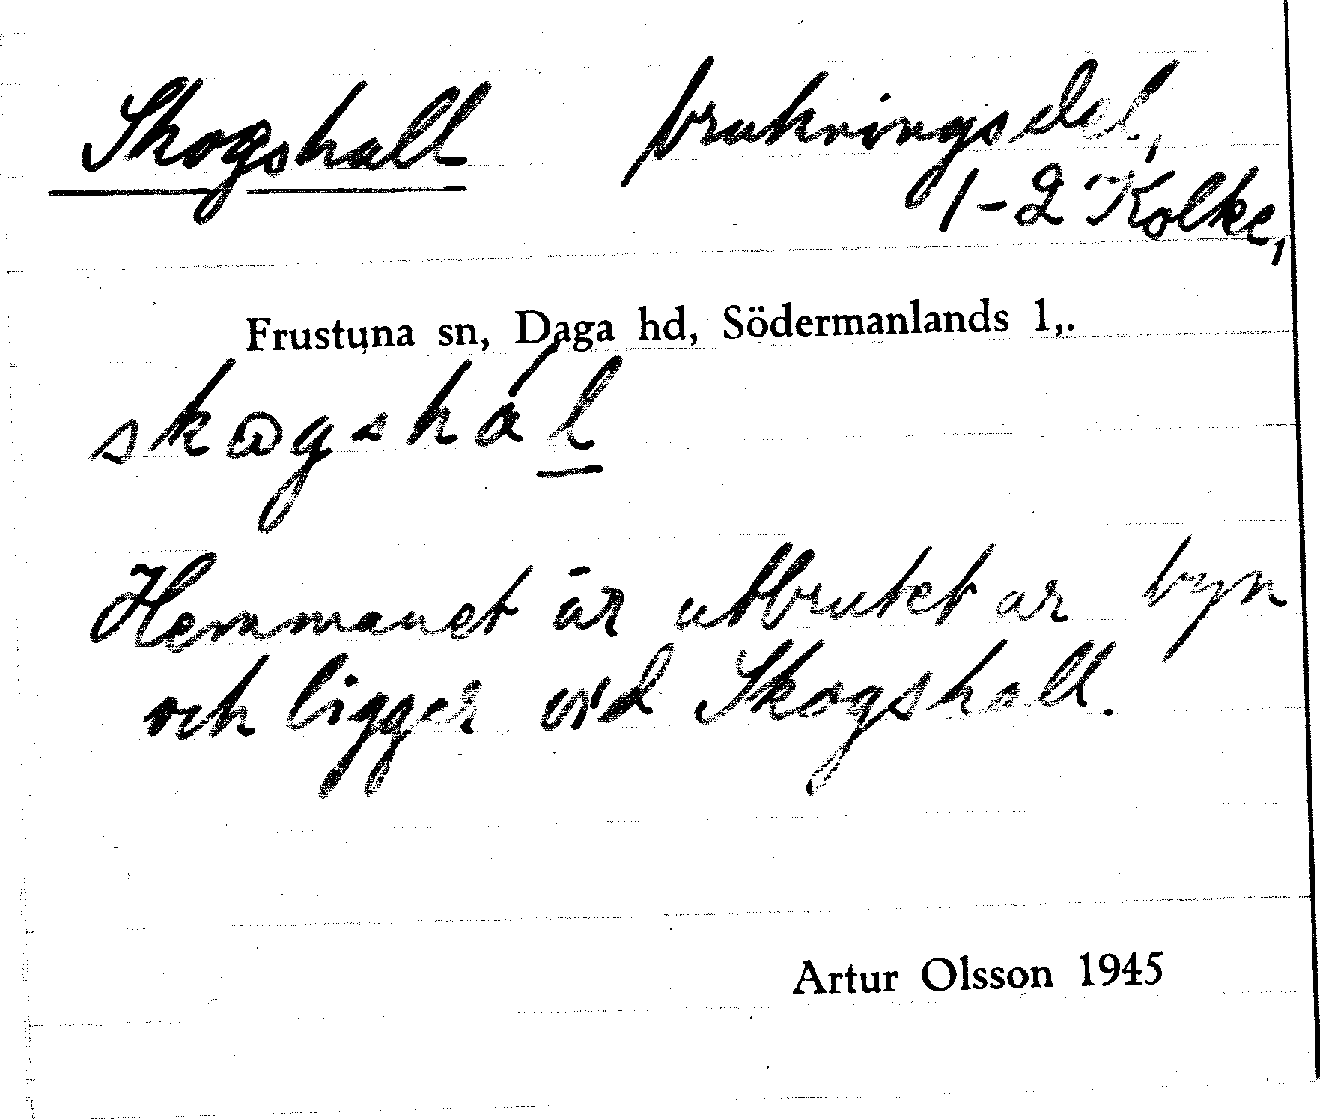 Skogshall brukningsdel,
1-2 Kolke,
Frustuna sn, Daga hd, Södermanlands l,.
skωgshál
Hemmanet är utbrutet ur byn
och ligger vid Skogshall.
Artur Olsson 1945